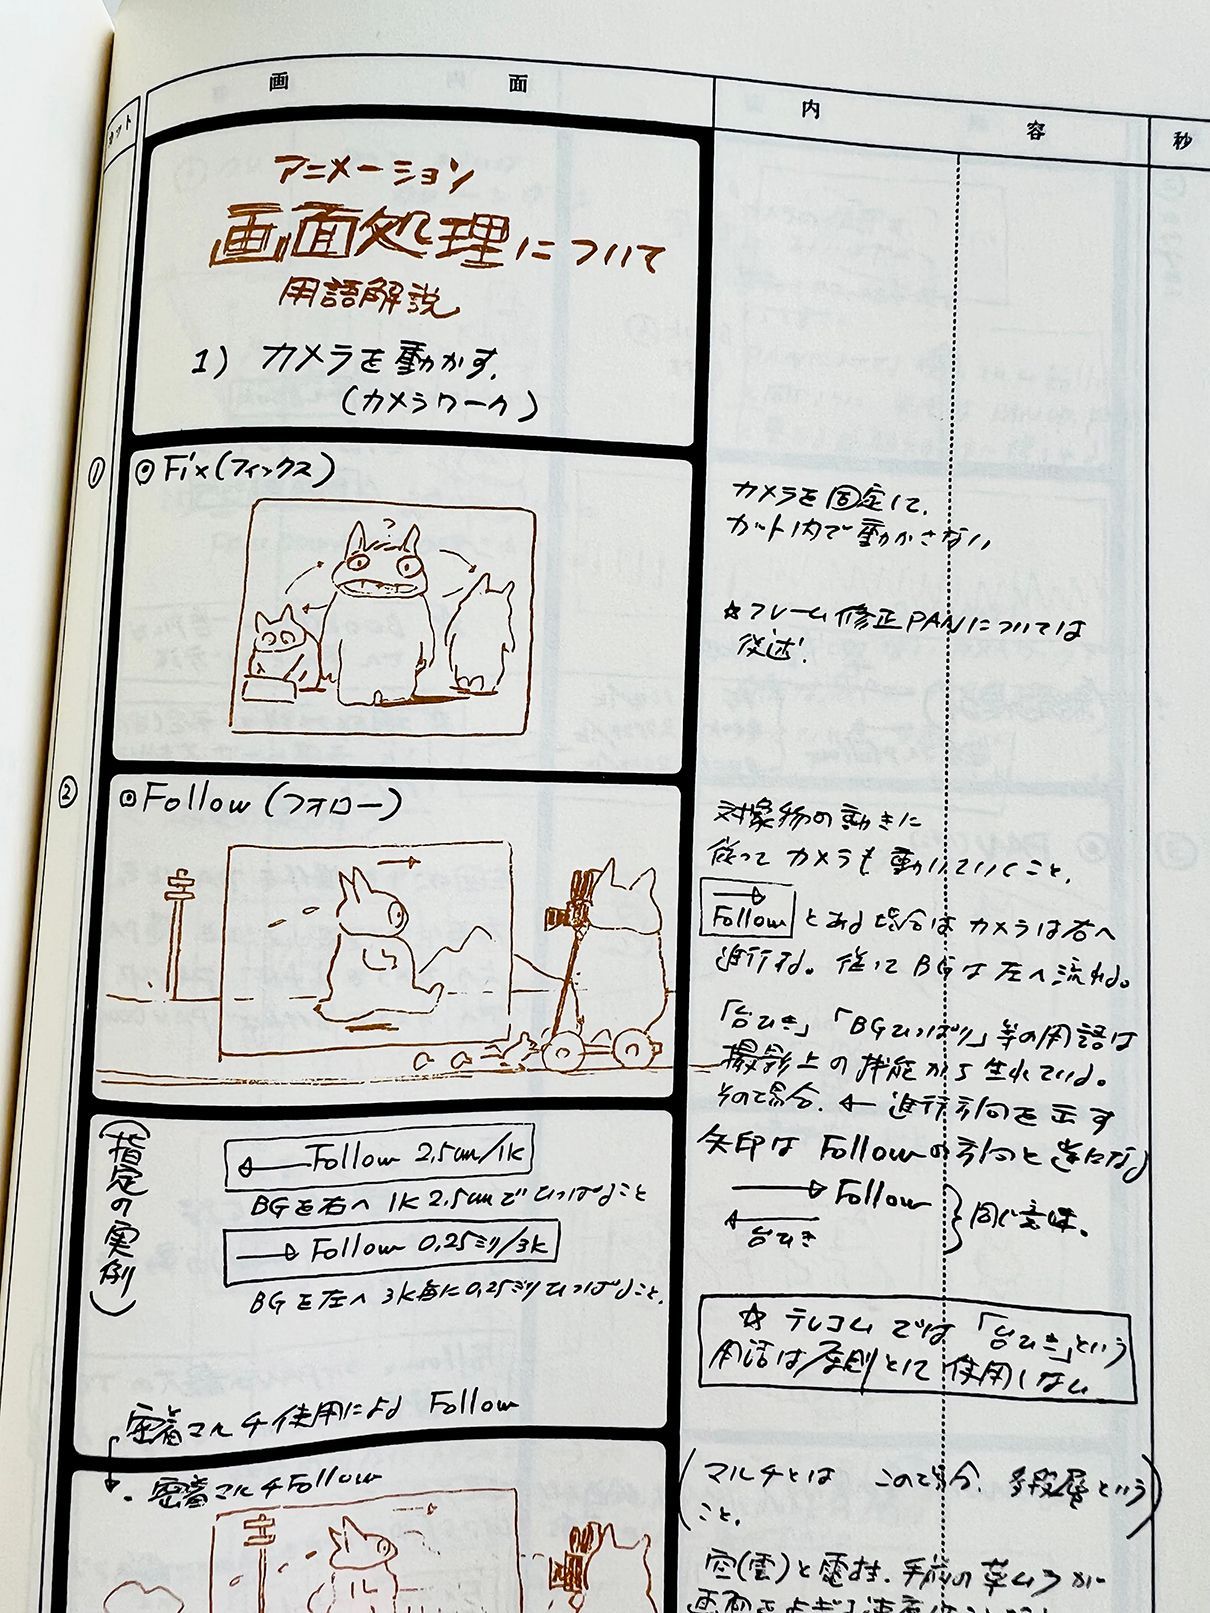 カット
画 面
内 容
秒
アニメーション
画面処理について
用語解説
1) カメラを動かす.
(カメラワーク)
①
◎Fix(フィックス)
カメラを固定して.
カット内で動かさない
☆フレーム修正PANについては
後述.
②
◎Follow(フォロー)
対象物の動きに
従って カメラも動いていくこと.
Follow とある場合はカメラは右へ
進行する。従ってBGは左へ流れる。
「台ひき」「BGひっぱり」等の用語は
撮影上の技能から生れている。
その場合. ← 進行方向を示す
矢印は Followの方向と逆になる
→ Follow
← 台ひき
同じ意味.
(指定の実例)
← Follow 2.5cm/1K
BGを右へ 1K 2.5cmでひっぱること
→ Follow 0.25ミリ/3K
BGを左へ 3K毎に0.25ミリひっぱること.
☆ テレコムでは「台ひき」という
用語は原則として使用しない
密着マルチ使用による Follow
・密着マルチFollow
(マルチとは この場合. 多段層という
こと.)
空(雲)と電柱.手前の草ムラが